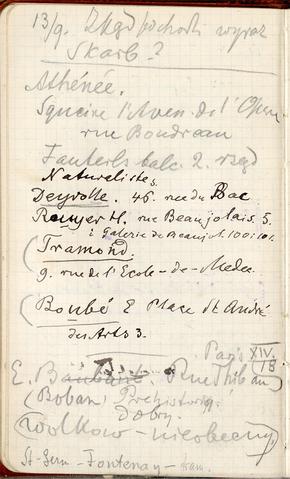 13/9. Skąd pochodzi wyraz
Skarb?
Athénée.
Square l'Aven. de l'Opera
rue Boudreau
Fauteuls balc. 2. rzęd
Naturalistes.
Deyrolle. 46. rue du Bac
H. rue Beaujolais. 5.
E Galerie de Beaujol. 100 i 101.
(Tramond.
9. rue de l'Ecole-de-Medec.
(Boubé E Place St André
des Arts 3.
Paris XIV.
E. Rue Thib 18
(Boban) Prehistoryg.
Dobry.
(Wolkow - nieobecny)
St-Germ - Fontenay - tram.